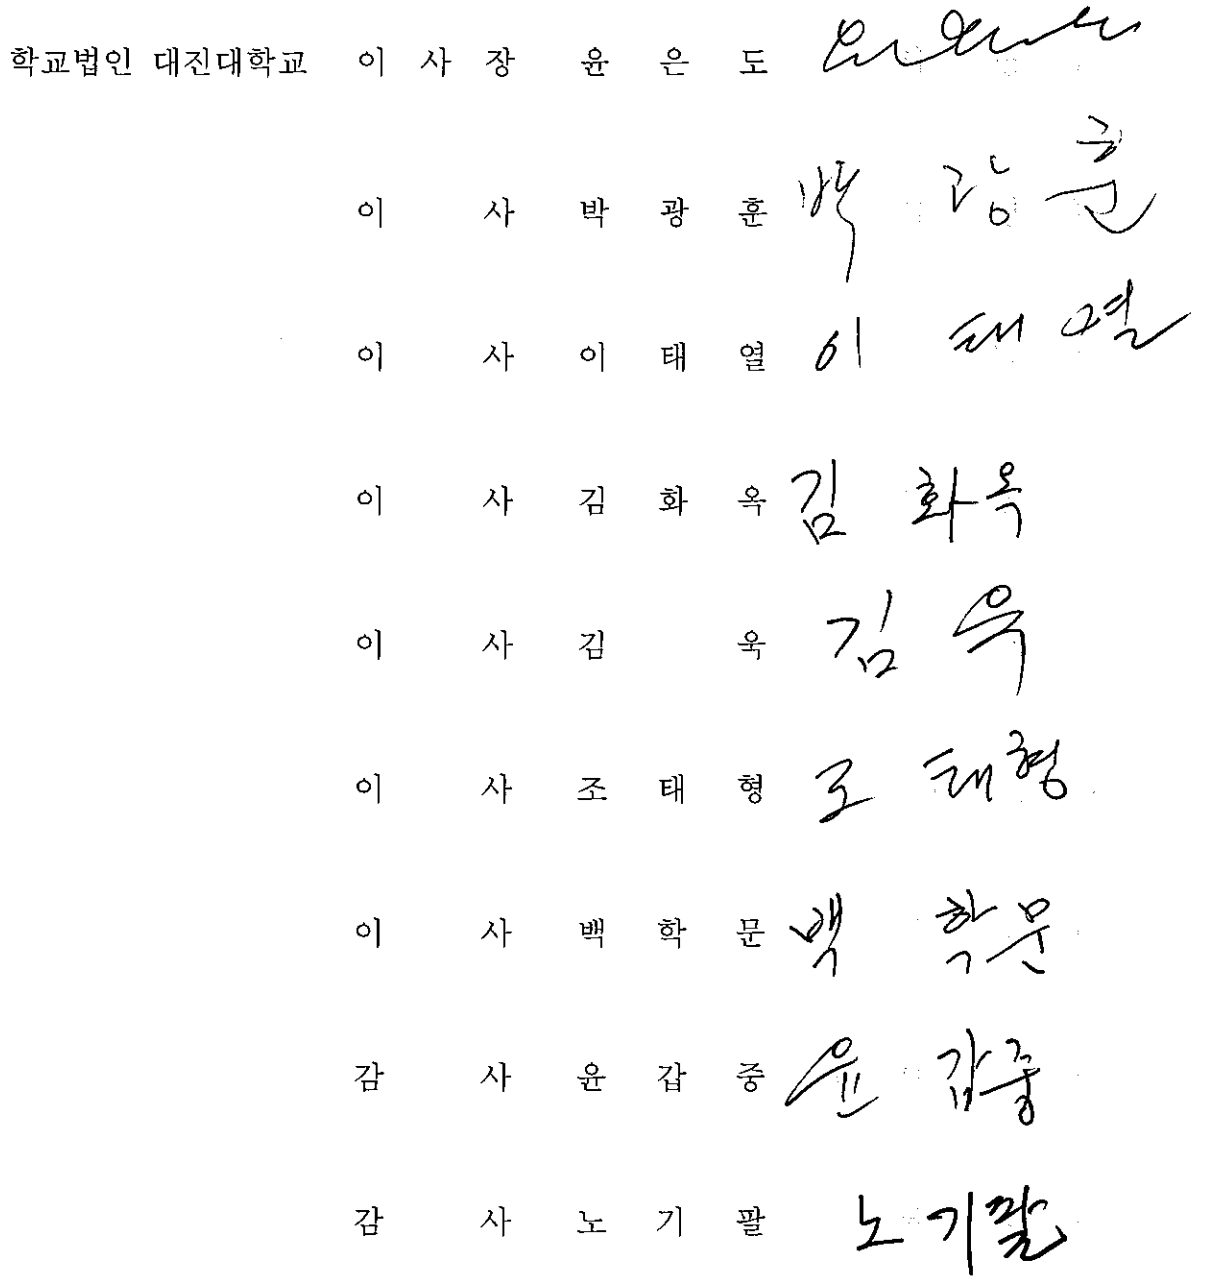 학교법인 대진대학교 이 사 장 윤 은 도
이 사 박 광 훈 박 광 훈
이 사 이 태 열 이 태 열
이 사 김 화 옥 김 화옥
이 사 김 욱 김 욱
이 사 조 태 형 조 태형
이 사 백 학 문 백 학문
감 사 윤 갑 중 윤 갑중
감 사 노 기 팔 노 기팔